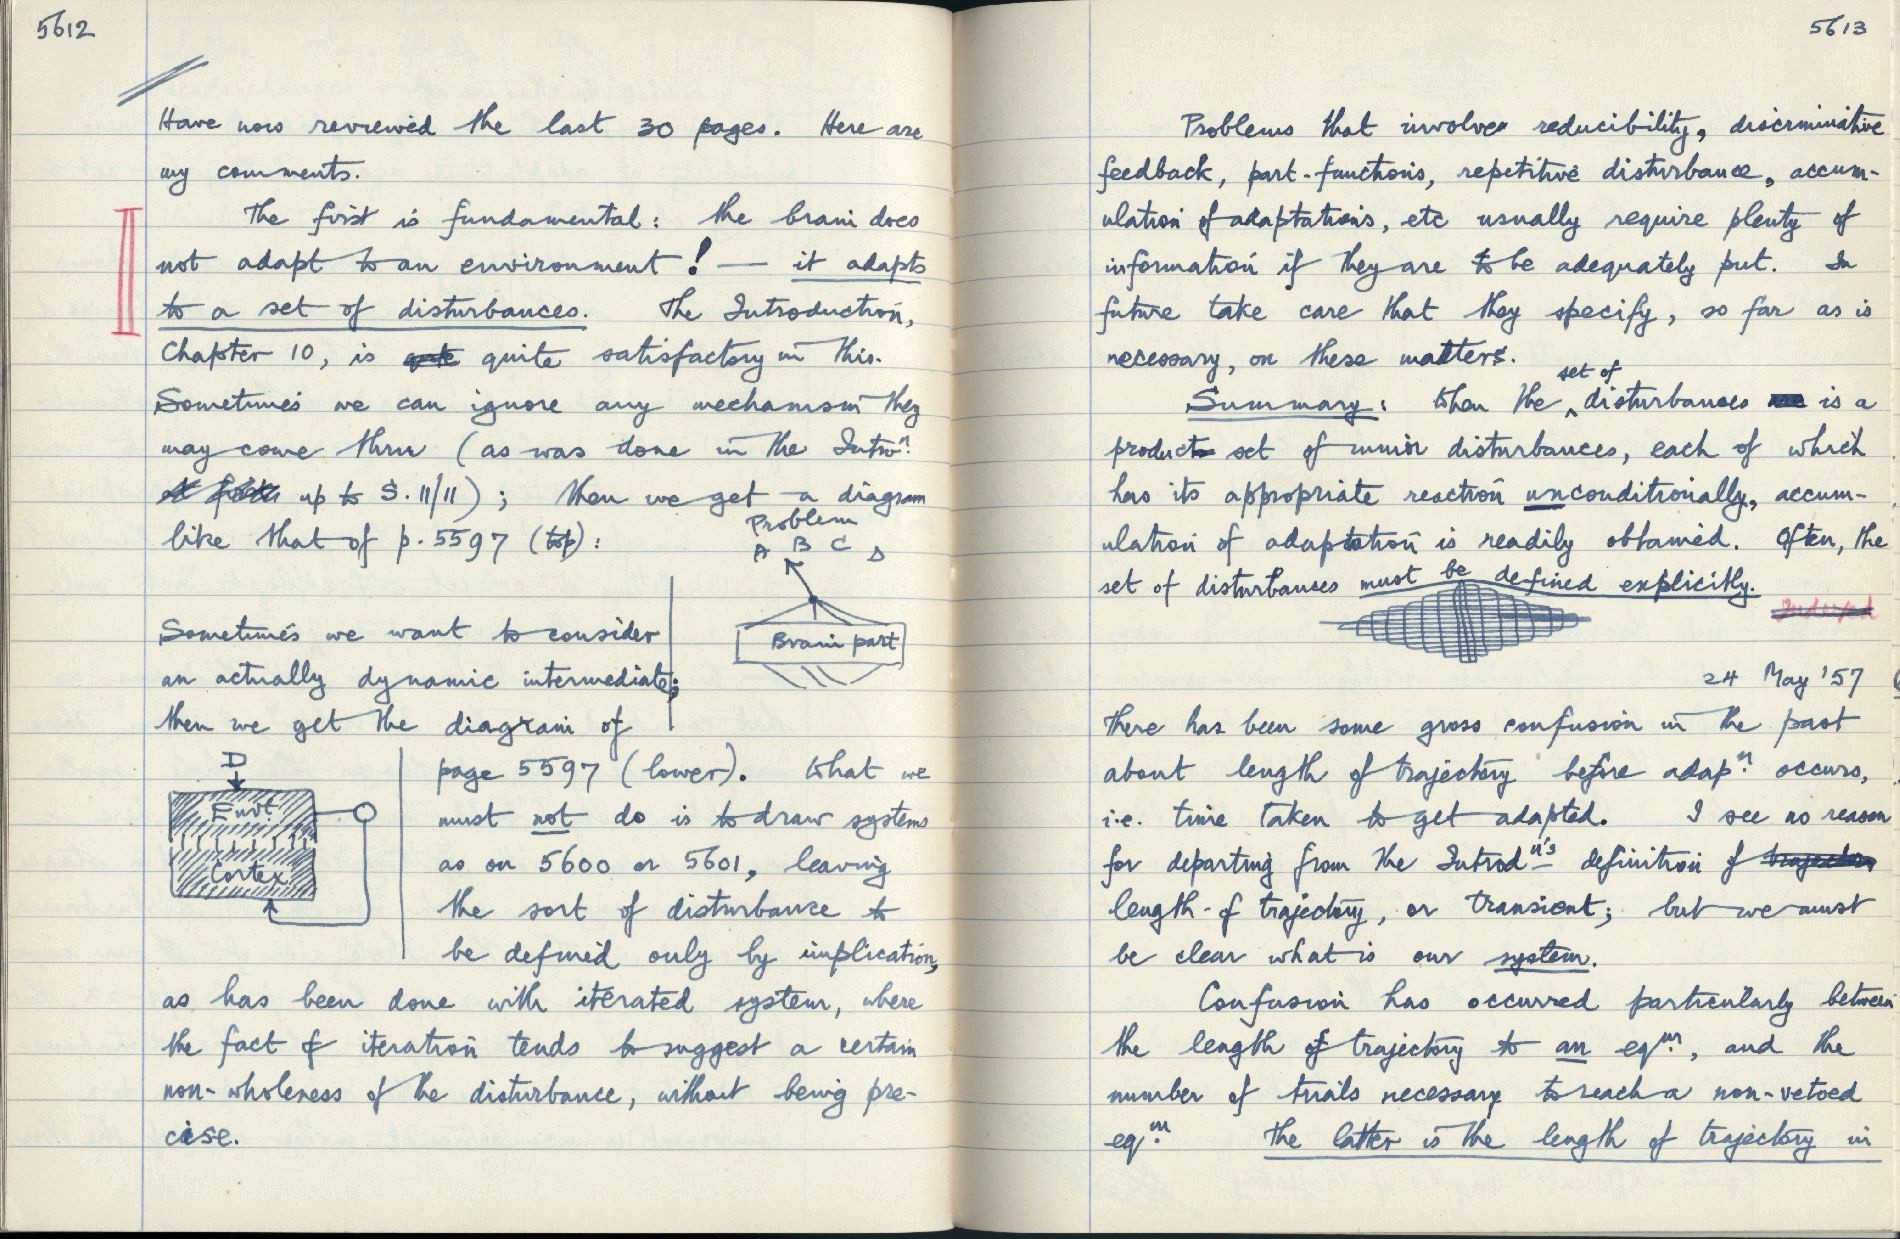 5612
Have now reviewed the last 30 pages. Here are
my comments.
The first is fundamental: the brain does
not adapt to an environment! — it adapts
to a set of disturbances. The Introduction,
Chapter 10, is quite satisfactory in this.
Sometimes we can ignore any mechanism they
may come thru (as was done in the Intro<sup>n</sup>.
up to S. 11/11); then we get a diagram
like that of p. 5597 (top):
Problem
A B C D
Brain part
Sometimes we want to consider
an actually dynamic intermediate;
then we get the diagram of
D
Envt.
Cortex
page 5597 (lower). What we
must not do is to draw systems
as on 5600 or 5601, leaving
the sort of disturbance to
be defined only by implication,
as has been done with iterated system, where
the fact of iteration tends to suggest a certain
non-wholeness of the disturbance, without being pre-
cise.
5613
Problems that involve reducibility, discriminative
feedback, part-functions, repetitive disturbance, accum-
ulation of adaptations, etc usually require plenty of
information if they are to be adequately put. In
future take care that they specify, so far as is
necessary, on these matters.
Summary: When the set of disturbances is a
product set of minor disturbances, each of which
has its appropriate reaction unconditionally, accum-
ulation of adaptation is readily obtained. Often, the
set of disturbances must be defined explicitly.
Indexed
24 May '57
There has been some gross confusion in the past
about length of trajectory before adap<sup>n</sup>. occurs,
i.e. time taken to get adapted. I see no reason
for departing from the Introd<sup>n's</sup> definition of trajectory
length-of trajectory, or transient; but we must
be clear what is our system.
Confusion has occurred particularly between
the length of trajectory to an eq<sup>m</sup>., and the
number of trials necessary to reach a non-vetoed
eq<sup>m</sup>. The latter is the length of trajectory in